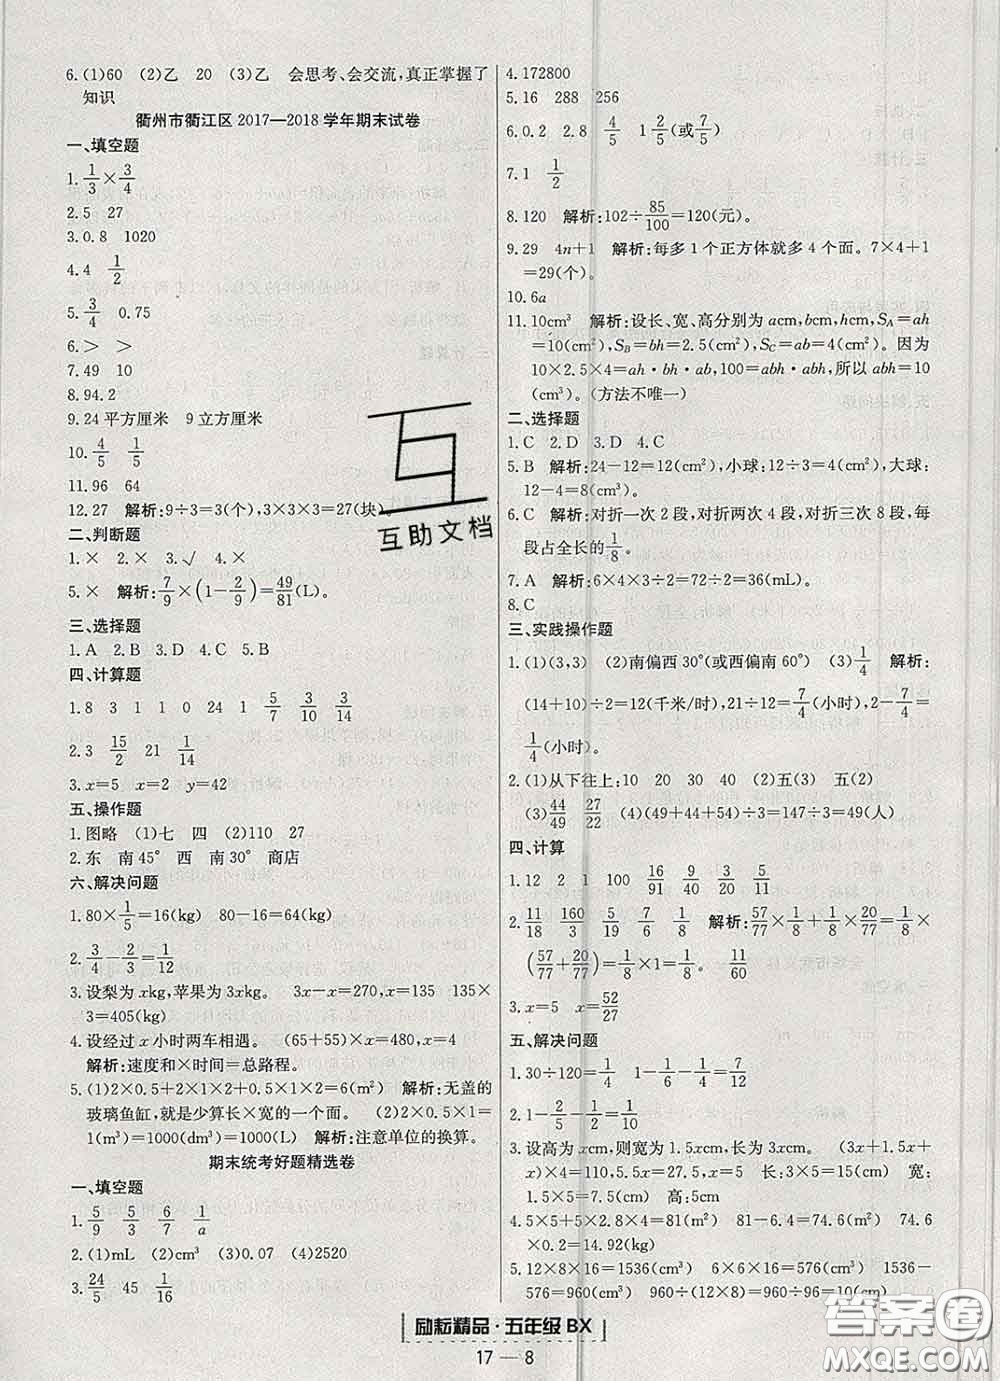 6.(1)60 (2)乙 20 (3)乙 会思考、会交流,真正掌握了
知识
衢州市衢江区2017—2018学年期末试卷
一、填空题
1.1/3×3/4
2.5 27
3.0.8 1020
4.4 1/2
5.3/4 0.75
6.> >
7.49 10
8.94.2
9.24平方厘米 9立方厘米
10.4/5 1/5
11.96 64
12.27 解析:9÷3=3(个),3×3×3=27(块)。
二、判断题
1.× 2.× 3.√ 4.×
5.× 解析:7/9×(1-2/9)=49/81(L)。
三、选择题
1.A 2.B 3.D 4.C 5.B
四、计算题
1.8 3 1 1 0 24 1 5/7 3/10 3/14
2.3 15/2 21 1/14
3.x=5 x=2 y=42
五、操作题
1.图略 (1)七 四 (2)110 27
2.东 南45° 西 南30° 商店
六、解决问题
1.80×1/5=16(kg) 80-16=64(kg)
2.3/4-2/3=1/12
3.设梨为xkg,苹果为3xkg。 3x-x=270,x=135 135×
3=405(kg)
4.设经过x小时两车相遇。 (65+55)×x=480,x=4
解析:速度和×时间=总路程。
5.(1)2×0.5+2×1×2+0.5×1×2=6(m²) 解析:无盖的
玻璃鱼缸,就是少算长×宽的一个面。 (2)2×0.5×1=
1(m³)=1000(dm³)=1000(L) 解析:注意单位的换算。
期末统考好题精选卷
一、填空题
1.5/9 5/3 6/7 1/a
2.(1)mL (2)cm³ (3)0.07 (4)2520
3.24/5 45 1/16
4.172800
5.16 288 256
6.0.2 2.8 4/5 1 2/5(或7/5)
7.1 1/2
8.120 解析:102÷85/100=120(元)。
9.29 4n+1 解析:每多1个正方体就多4个面。7×4+1
=29(个)。
10.6a
11.10cm³ 解析:设长、宽、高分别为acm,bcm,hcm,S_A=ah
=10(cm²),S_B=bh=2.5(cm²),S_C=ab=4(cm²)。因为
10×2.5×4=ah·bh·ab,100=abh·abh,所以abh=10
(cm³)。(方法不唯一)
二、选择题
1.C 2.D 3.D 4.C
5.B 解析:24-12=12(cm³),小球:12÷3=4(cm³),大球:
12-4=8(cm³)。
6.C 解析:对折一次2段,对折两次4段,对折三次8段,每
段占全长的1/8。
7.A 解析:6×4×3÷2=36(mL)。
8.C
三、实践操作题
1.(1)(3,3) (2)南偏西30°(或西偏南60°) (3)1/4 解析:
(14+10)÷2=12(千米/时),21÷12=7/4(小时),2-7/4=
1/4(小时)。
2.(1)从下往上:10 20 30 40 (2)五(3) 五(2)
(3)44/49 27/22 (4)(49+44+54)÷3=147÷3=49(人)
四、计算
1.12 2 1 100 16/91 9/40 3/20 5/11
2.11/18 160/3 5/19 7/6 1/8 解析:57/77×1/8+1/8×20/77=1/8×
(57/77+20/77)=1/8×1=1/8。 11/60
3.x=5 x=52/27
五、解决问题
1.30÷120=1/4 1-1/4-1/6=7/12
2.1-1/2-2/5=1/10
3.设高为xcm,则宽为1.5xcm,长为3xcm。 (3x+1.5x+
x)×4=110,5.5x×4=110,x=5 长:3×5=15(cm) 宽:
1.5×5=7.5(cm) 高:5cm
4.5×5+5×2.8×4=81(m²) 81-6.4=74.6(m²) 74.6
×0.2=14.92(kg)
5.12×8×16=1536(cm³) 6×6×16=576(cm³) 1536-
576=960(cm³) 960÷(12×8)=960÷96=10(cm)
励耘精品·五年级 BX
17—8
互助文档
答案圈
MXQE.COM